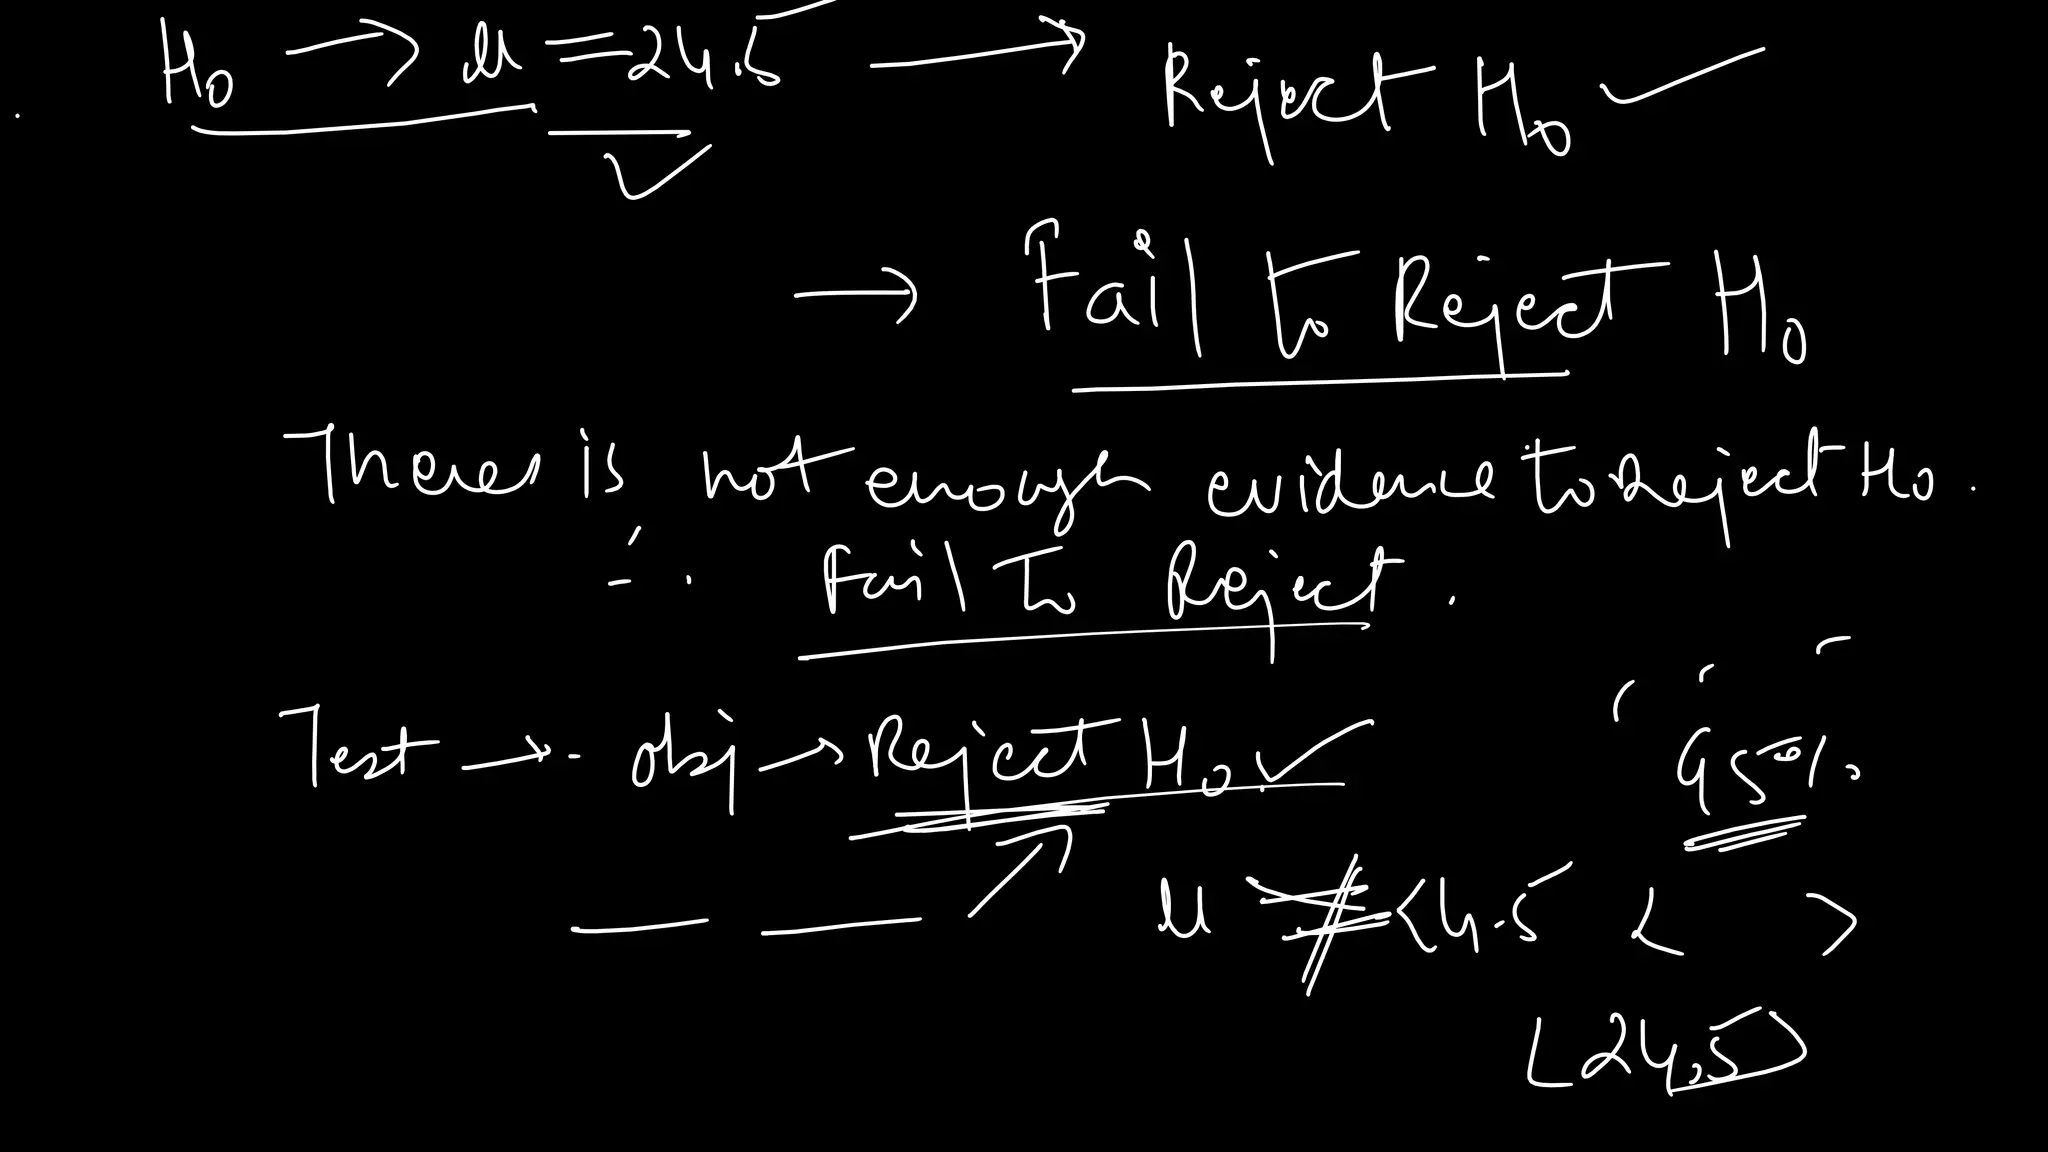 H₀ → μ = 24.5 → Reject H₀ ✓
→ Fail to Reject H₀
There is not enough evidence to Reject H₀.
∴ Fail to Reject.
Test → - obj → Reject H₀ ✓
95%
μ ≠ 24.5 < >
(24.5)